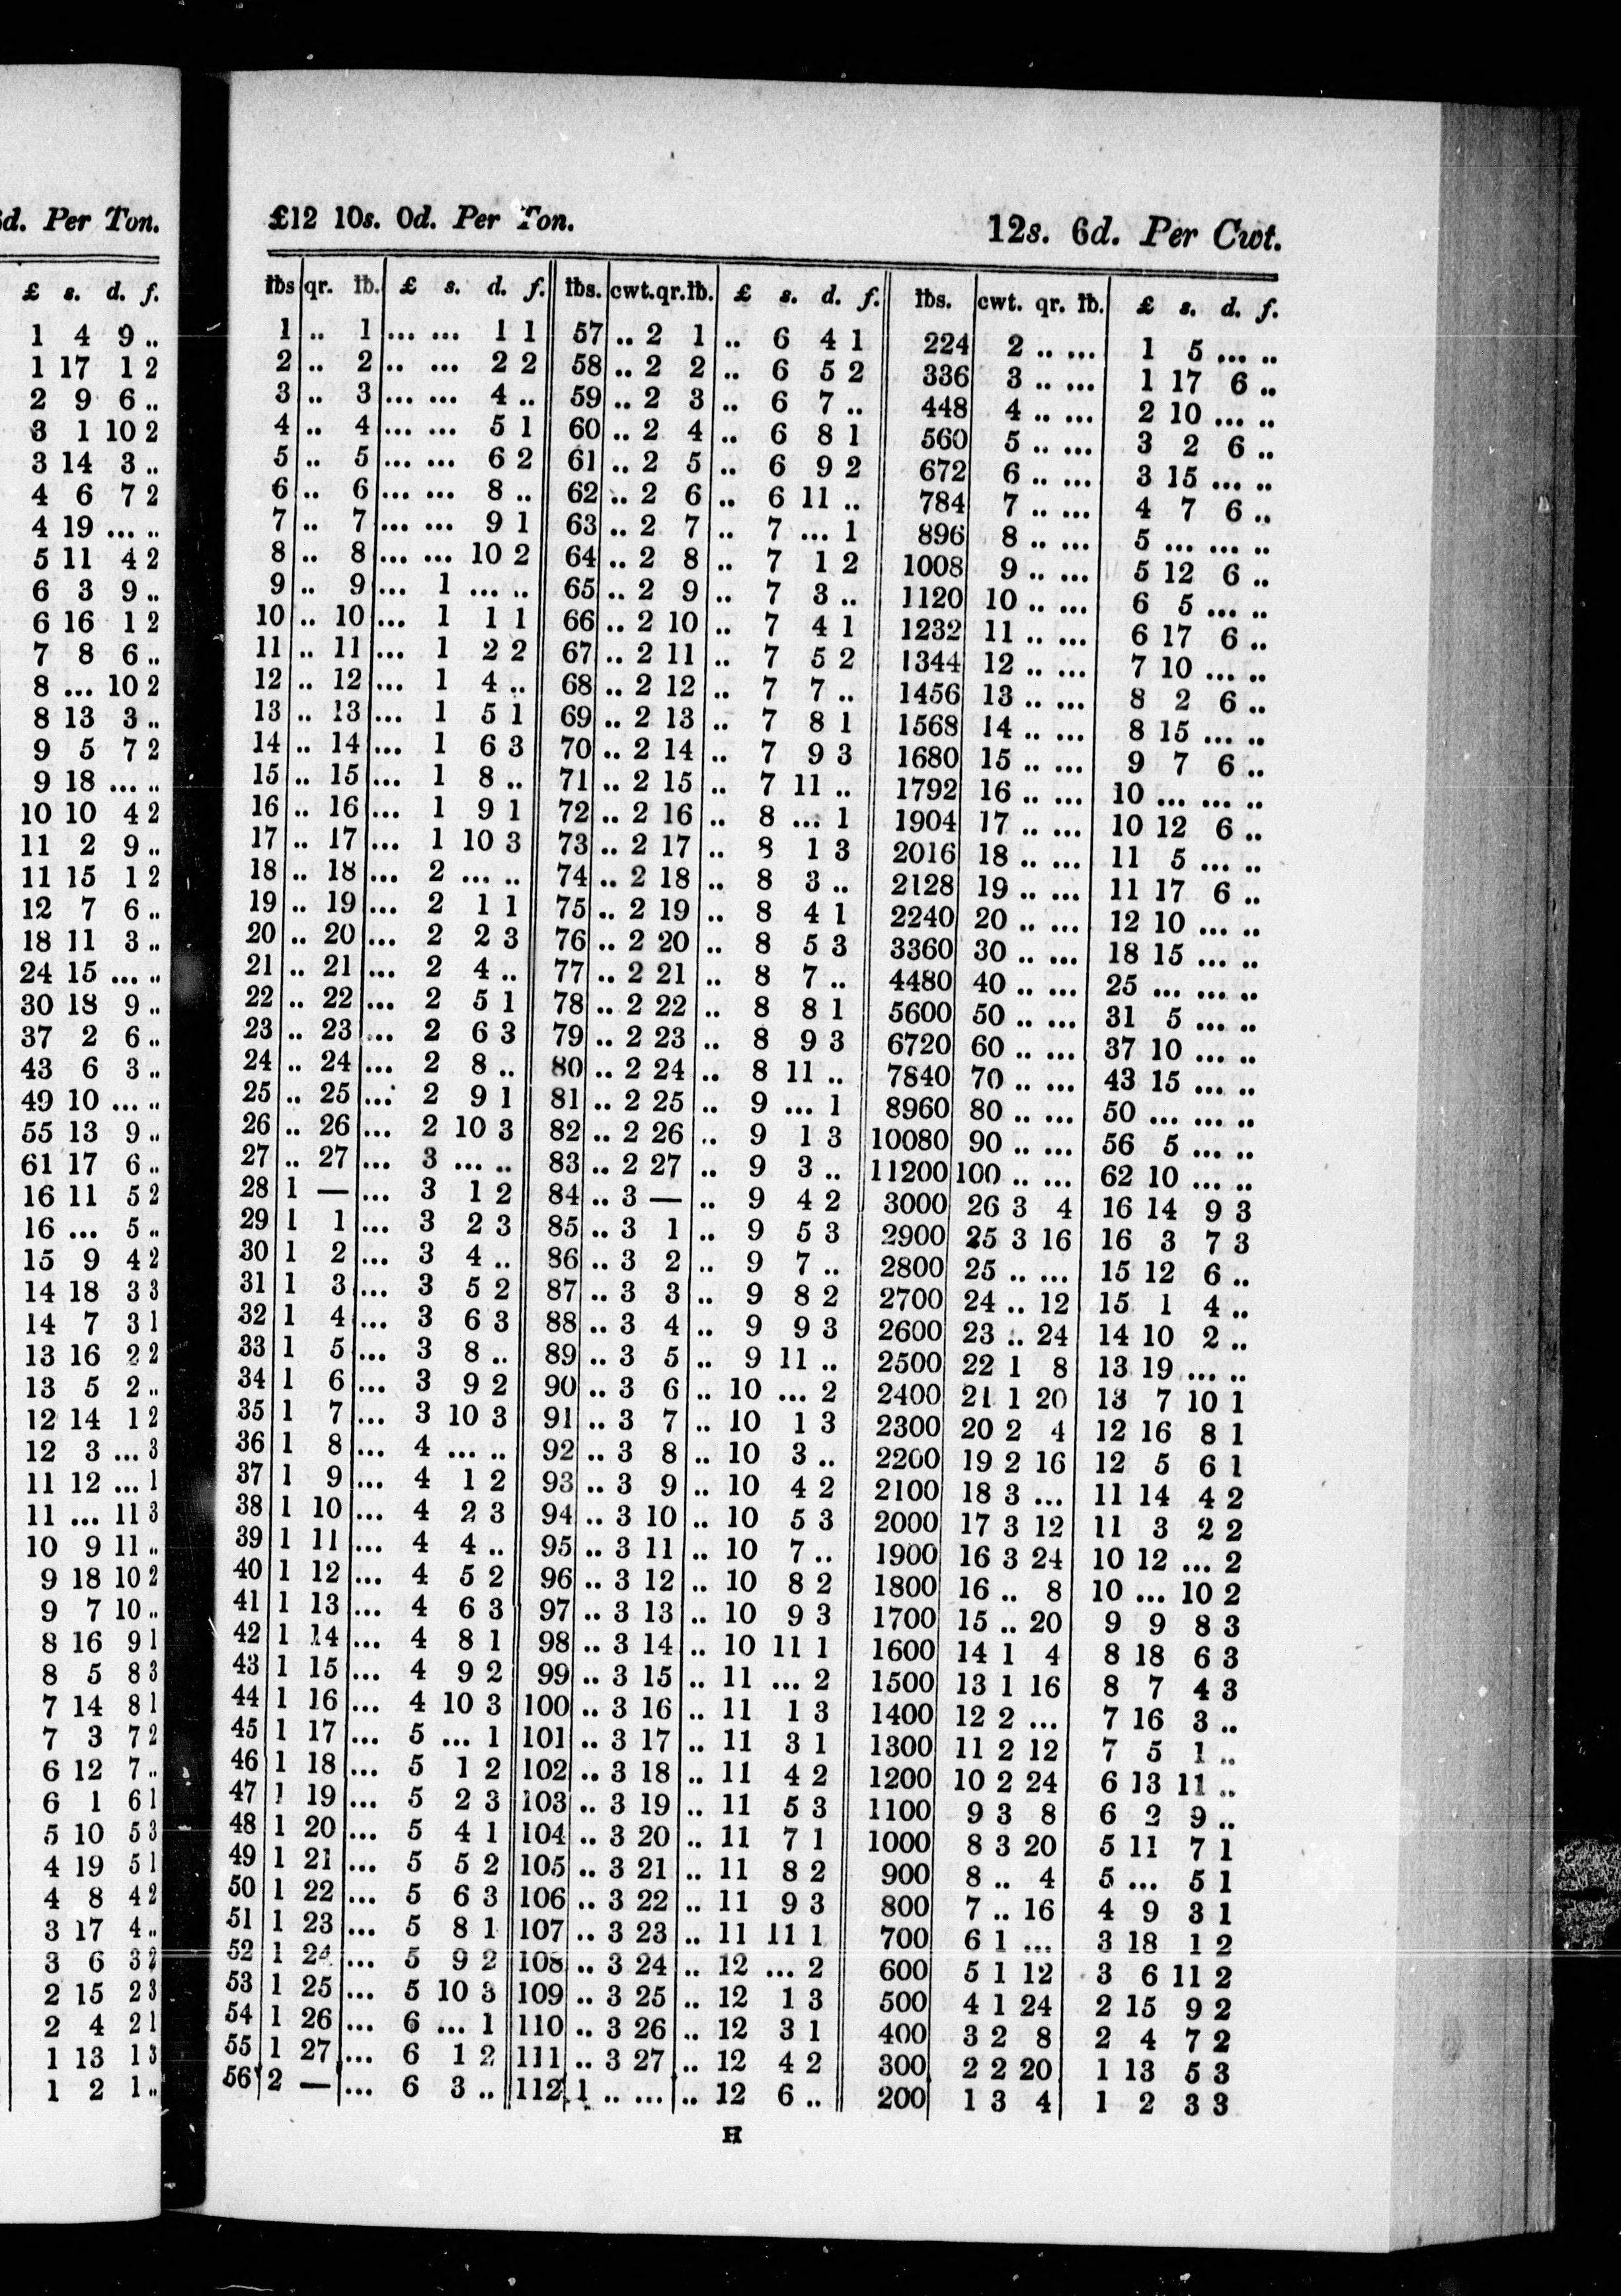 d. Per Ton.
£ s. d. f.
1 4 9 ..
1 17 1 2
2 9 6 ..
3 1 10 2
3 14 3 ..
4 6 7 2
4 19 ... ..
5 11 4 2
6 3 9 ..
6 16 1 2
7 8 6 ..
8 ... 10 2
8 13 3 ..
9 5 7 2
9 18 ... ..
10 10 4 2
11 2 9 ..
11 15 1 2
12 7 6 ..
18 11 3 ..
24 15 ... ..
30 18 9 ..
37 2 6 ..
43 6 3 ..
49 10 ... ..
55 13 9 ..
61 17 6 ..
16 11 5 2
16 ... 5 ..
15 9 4 2
14 18 3 3
14 7 3 1
13 16 2 2
13 5 2 ..
12 14 1 2
12 3 ... 3
11 12 ... 1
11 ... 11 3
10 9 11 ..
9 18 10 2
9 7 10 ..
8 16 9 1
8 5 8 3
7 14 8 1
7 3 7 2
6 12 7 ..
6 1 6 1
5 10 5 3
4 19 5 1
4 8 4 2
3 17 4 ..
3 6 3 2
2 15 2 3
2 4 2 1
1 13 1 3
1 2 1 ..
£12 10s. 0d. Per Ton. 12s. 6d. Per Cwt.
lbs qr. lb. £ s. d. f. lbs. cwt. qr. lb. £ s. d. f. lbs. cwt. qr. lb. £ s. d. f.
1 .. 1 ... ... 1 1 57 .. 2 1 .. 6 4 1 224 2 .. ... 1 5 ... ..
2 .. 2 .. ... 2 2 58 .. 2 2 .. 6 5 2 336 3 .. ... 1 17 6 ..
3 .. 3 ... ... 4 .. 59 .. 2 3 .. 6 7 .. 448 4 .. ... 2 10 ... ..
4 .. 4 ... ... 5 1 60 .. 2 4 .. 6 8 1 560 5 .. ... 3 2 6 ..
5 .. 5 ... ... 6 2 61 .. 2 5 .. 6 9 2 672 6 .. ... 3 15 ... ..
6 .. 6 ... ... 8 .. 62 .. 2 6 .. 6 11 .. 784 7 .. ... 4 7 6 ..
7 .. 7 ... ... 9 1 63 .. 2 7 .. 7 ... 1 896 8 .. ... 5 ... ... ..
8 .. 8 ... ... 10 2 64 .. 2 8 .. 7 1 2 1008 9 .. ... 5 12 6 ..
9 .. 9 ... 1 ... .. 65 .. 2 9 .. 7 3 .. 1120 10 .. ... 6 5 ... ..
10 .. 10 ... 1 1 1 66 .. 2 10 .. 7 4 1 1232 11 .. ... 6 17 6 ..
11 .. 11 ... 1 2 2 67 .. 2 11 .. 7 5 2 1344 12 .. ... 7 10 ... ..
12 .. 12 ... 1 4 .. 68 .. 2 12 .. 7 7 .. 1456 13 .. ... 8 2 6 ..
13 .. 13 ... 1 5 1 69 .. 2 13 .. 7 8 1 1568 14 .. ... 8 15 ... ..
14 .. 14 ... 1 6 3 70 .. 2 14 .. 7 9 3 1680 15 .. ... 9 7 6 ..
15 .. 15 ... 1 8 .. 71 .. 2 15 .. 7 11 .. 1792 16 .. ... 10 ... ... ..
16 .. 16 ... 1 9 1 72 .. 2 16 .. 8 ... 1 1904 17 .. ... 10 12 6 ..
17 .. 17 ... 1 10 3 73 .. 2 17 .. 8 1 3 2016 18 .. ... 11 5 ... ..
18 .. 18 ... 2 ... .. 74 .. 2 18 .. 8 3 .. 2128 19 .. ... 11 17 6 ..
19 .. 19 ... 2 1 1 75 .. 2 19 .. 8 4 1 2240 20 .. ... 12 10 ... ..
20 .. 20 ... 2 2 3 76 .. 2 20 .. 8 5 3 3360 30 .. ... 18 15 ... ..
21 .. 21 ... 2 4 .. 77 .. 2 21 .. 8 7 .. 4480 40 .. ... 25 ... ... ..
22 .. 22 ... 2 5 1 78 .. 2 22 .. 8 8 1 5600 50 .. ... 31 5 ... ..
23 .. 23 ... 2 6 3 79 .. 2 23 .. 8 9 3 6720 60 .. ... 37 10 ... ..
24 .. 24 ... 2 8 .. 80 .. 2 24 .. 8 11 .. 7840 70 .. ... 43 15 ... ..
25 .. 25 ... 2 9 1 81 .. 2 25 .. 9 ... 1 8960 80 .. ... 50 ... ... ..
26 .. 26 ... 2 10 3 82 .. 2 26 .. 9 1 3 10080 90 .. ... 56 5 ... ..
27 .. 27 ... 3 ... .. 83 .. 2 27 .. 9 3 .. 11200 100 .. ... 62 10 ... ..
28 1 — ... 3 1 2 84 .. 3 — .. 9 4 2 3000 26 3 4 16 14 9 3
29 1 1 ... 3 2 3 85 .. 3 1 .. 9 5 3 2900 25 3 16 16 3 7 3
30 1 2 ... 3 4 .. 86 .. 3 2 .. 9 7 .. 2800 25 .. ... 15 12 6 ..
31 1 3 ... 3 5 2 87 .. 3 3 .. 9 8 2 2700 24 .. 12 15 1 4 ..
32 1 4 ... 3 6 3 88 .. 3 4 .. 9 9 3 2600 23 .. 24 14 10 2 ..
33 1 5 ... 3 8 .. 89 .. 3 5 .. 9 11 .. 2500 22 1 8 13 19 ... ..
34 1 6 ... 3 9 2 90 .. 3 6 .. 10 ... 2 2400 21 1 20 13 7 10 1
35 1 7 ... 3 10 3 91 .. 3 7 .. 10 1 3 2300 20 2 4 12 16 8 1
36 1 8 ... 4 ... .. 92 .. 3 8 .. 10 3 .. 2200 19 2 16 12 5 6 1
37 1 9 ... 4 1 2 93 .. 3 9 .. 10 4 2 2100 18 3 ... 11 14 4 2
38 1 10 ... 4 2 3 94 .. 3 10 .. 10 5 3 2000 17 3 12 11 3 2 2
39 1 11 ... 4 4 .. 95 .. 3 11 .. 10 7 .. 1900 16 3 24 10 12 ... 2
40 1 12 ... 4 5 2 96 .. 3 12 .. 10 8 2 1800 16 .. 8 10 ... 10 2
41 1 13 ... 4 6 3 97 .. 3 13 .. 10 9 3 1700 15 .. 20 9 9 8 3
42 1 14 ... 4 8 1 98 .. 3 14 .. 10 11 1 1600 14 1 4 8 18 6 3
43 1 15 ... 4 9 2 99 .. 3 15 .. 11 ... 2 1500 13 1 16 8 7 4 3
44 1 16 ... 4 10 3 100 .. 3 16 .. 11 1 3 1400 12 2 ... 7 16 3 ..
45 1 17 ... 5 ... 1 101 .. 3 17 .. 11 3 1 1300 11 2 12 7 5 1 ..
46 1 18 ... 5 1 2 102 .. 3 18 .. 11 4 2 1200 10 2 24 6 13 11 ..
47 1 19 ... 5 2 3 103 .. 3 19 .. 11 5 3 1100 9 3 8 6 2 9 ..
48 1 20 ... 5 4 1 104 .. 3 20 .. 11 7 1 1000 8 3 20 5 11 7 1
49 1 21 ... 5 5 2 105 .. 3 21 .. 11 8 2 900 8 .. 4 5 ... 5 1
50 1 22 ... 5 6 3 106 .. 3 22 .. 11 9 3 800 7 .. 16 4 9 3 1
51 1 23 ... 5 8 1 107 .. 3 23 .. 11 11 1 700 6 1 ... 3 18 1 2
52 1 24 ... 5 9 2 108 .. 3 24 .. 12 ... 2 600 5 1 12 3 6 11 2
53 1 25 ... 5 10 3 109 .. 3 25 .. 12 1 3 500 4 1 24 2 15 9 2
54 1 26 ... 6 ... 1 110 .. 3 26 .. 12 3 1 400 3 2 8 2 4 7 2
55 1 27 ... 6 1 2 111 .. 3 27 .. 12 4 2 300 2 2 20 1 13 5 3
56 2 — ... 6 3 .. 112 1 .. ... .. 12 6 .. 200 1 3 4 1 2 3 3
H